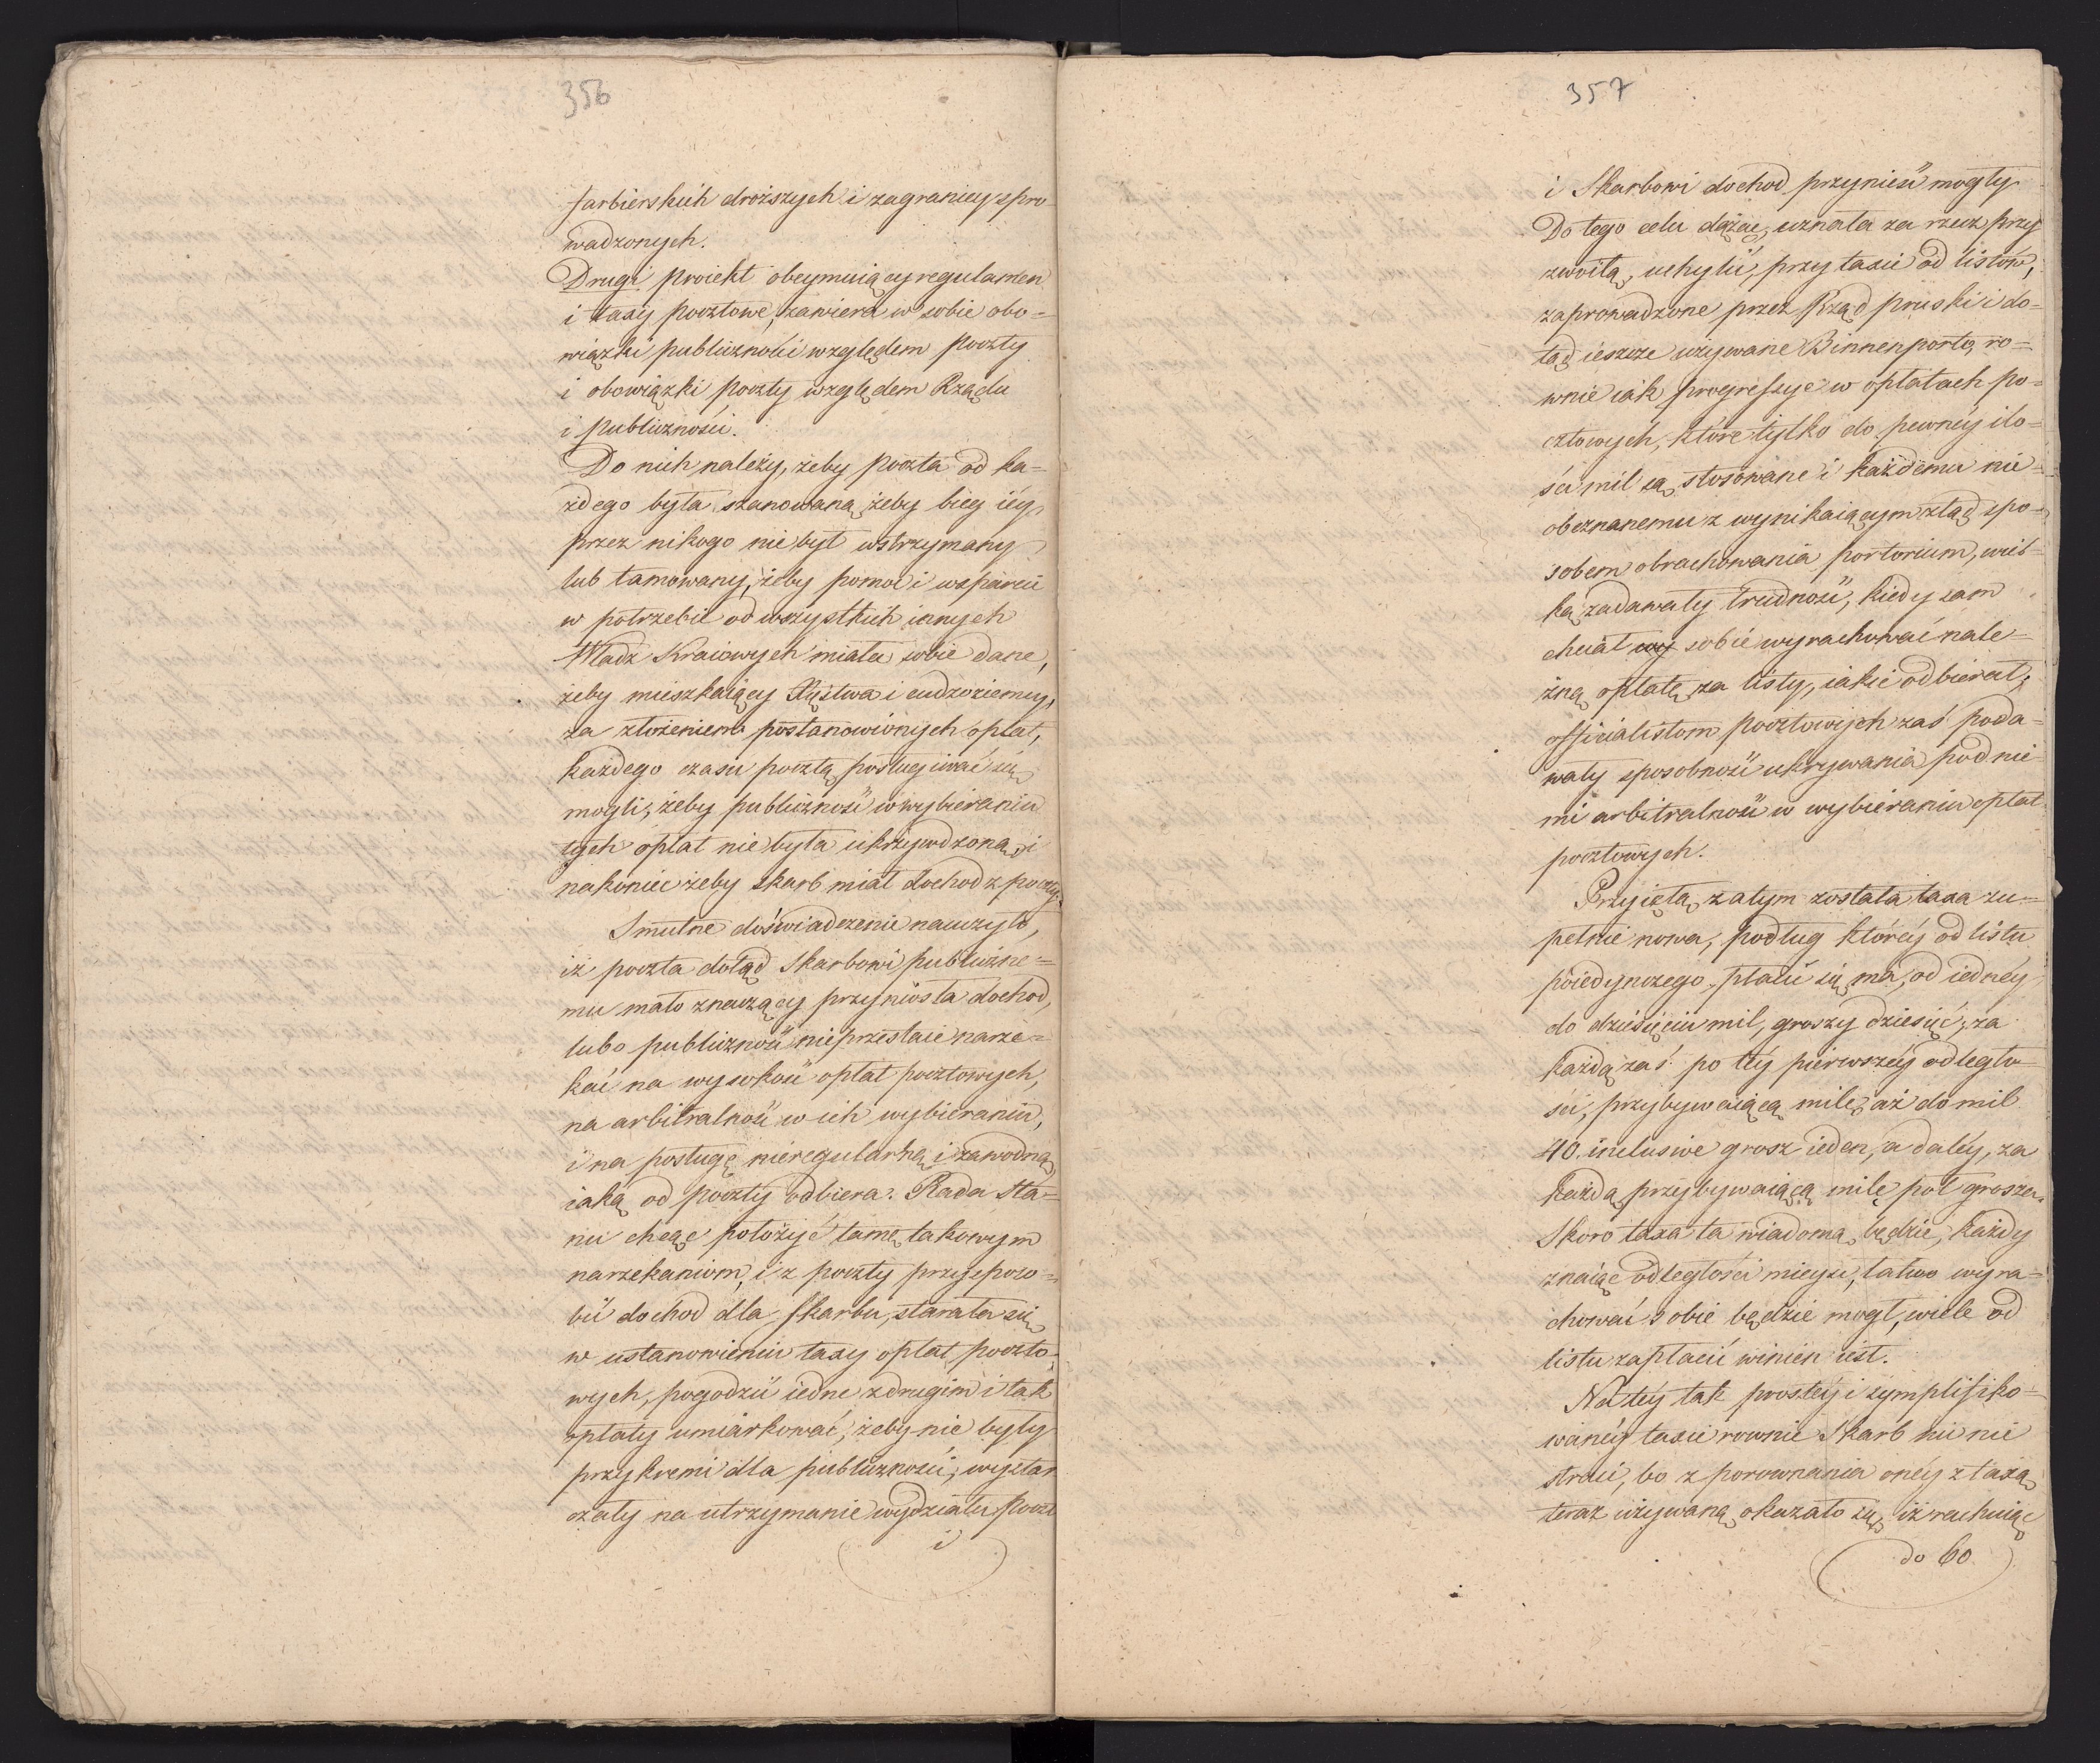 356
farbierskich droższych i zagranicy spro-
wadzonych.
Drugi proiekt obeymuiący regulamen
i taxy pocztowe, zawiera w sobie obo=
wiązki publiczności względem poczty
i obowiązki poczty względem Rządu
i publiczności.
Do nich należy, żeby poczta od ka=
żdego była szanowaną, żeby bieg iéy
przez nikogo nie był wstrzymany
lub tamowany, żeby pomoc i wsparcie
w potrzebie od wszystkich innych
Władz Kraiowych miała sobie dane,
żeby mieszkaiący Xięstwa i cudzoziemcy,
za złożeniem postanowionych opłat,
każdego czasu pocztą posługiwać się
mogli; żeby publiczność w wybieraniu
tych opłat nie była ukrzywdzoną, i
nakoniec żeby skarb miał dochod z poczty.
Smutne doświadczenie nauczyło,
iż poczta dotąd Skarbowi publiczne=
mu mało znaczący przyniosła dochod,
lubo publiczność nieprzestaie narze=
kać na wysokość opłat pocztowych,
na arbitralność w ich wybieraniu,
i na posługę nieregularną i zawodną,
iaką od poczty odbiera. Rada Sta=
nu chcąc położyć tamę takowym
narzekaniom, i z poczty przysposo=
bić dochod dla skarbu, starała się
w ustanowieniu taxy opłat poczto=
wych, pogodzić iedne z drugim i tak
opłaty umiarkować, żeby nie były
przykremi dla publiczności, wystar
czały na utrzymanie wydziału poczt
i
357
i Skarbowi dochod przynieść mogły.
Do tego celu dążąc, uznała za rzecz przy
zwoitą, uchylić, przy taxie od listów,
zaprowadzone przez Rząd pruski i do=
tąd ieszcze używane Binnenporto, ro=
wnie iak progressye w opłatach po=
cztowych, które tylko do pewnéy ilo=
ści mil są stosowane i każdemu nie=
obeznanemu z wynikaiącym ztąd spo=
sobem obrachowania portorium, wiel=
ką zadawały trudność, kiedy sam
chciał wy sobie wyrachować nale=
żną opłatę za listy, iakie odbierał;
officialistom pocztowych zaś poda=
wały sposobność ukrywania pod nie
mi arbitralność w wybieraniu opłat
pocztowych.
Przyiętą zatym została taxa zu=
pełnie nowa, podług któréy od listu
poiedynczego płacić się ma, od iednéy
do dziesięciu mil, groszy dziesięć, za
każdą zaś po téy pierwszéy odległo=
ści, przybywaiącą milę, aż do mil
40. inclusive grosz ieden, a daléy, za
każdą przybywaiącą milę poł grosza.
Skoro taxa ta wiadomą będzie, każdy
znaiąc odległości mieysc, łatwo wyra=
chować sobie będzie mogł, wiele od
listu zapłacić winien iest.
Na téy tak prostéy i symplifiko=
wanéy taxie rownie Skarb nic nie
straci, bo z porownania onéy z taxą
teraz używaną okazało się, iż rachuiąc
do 60